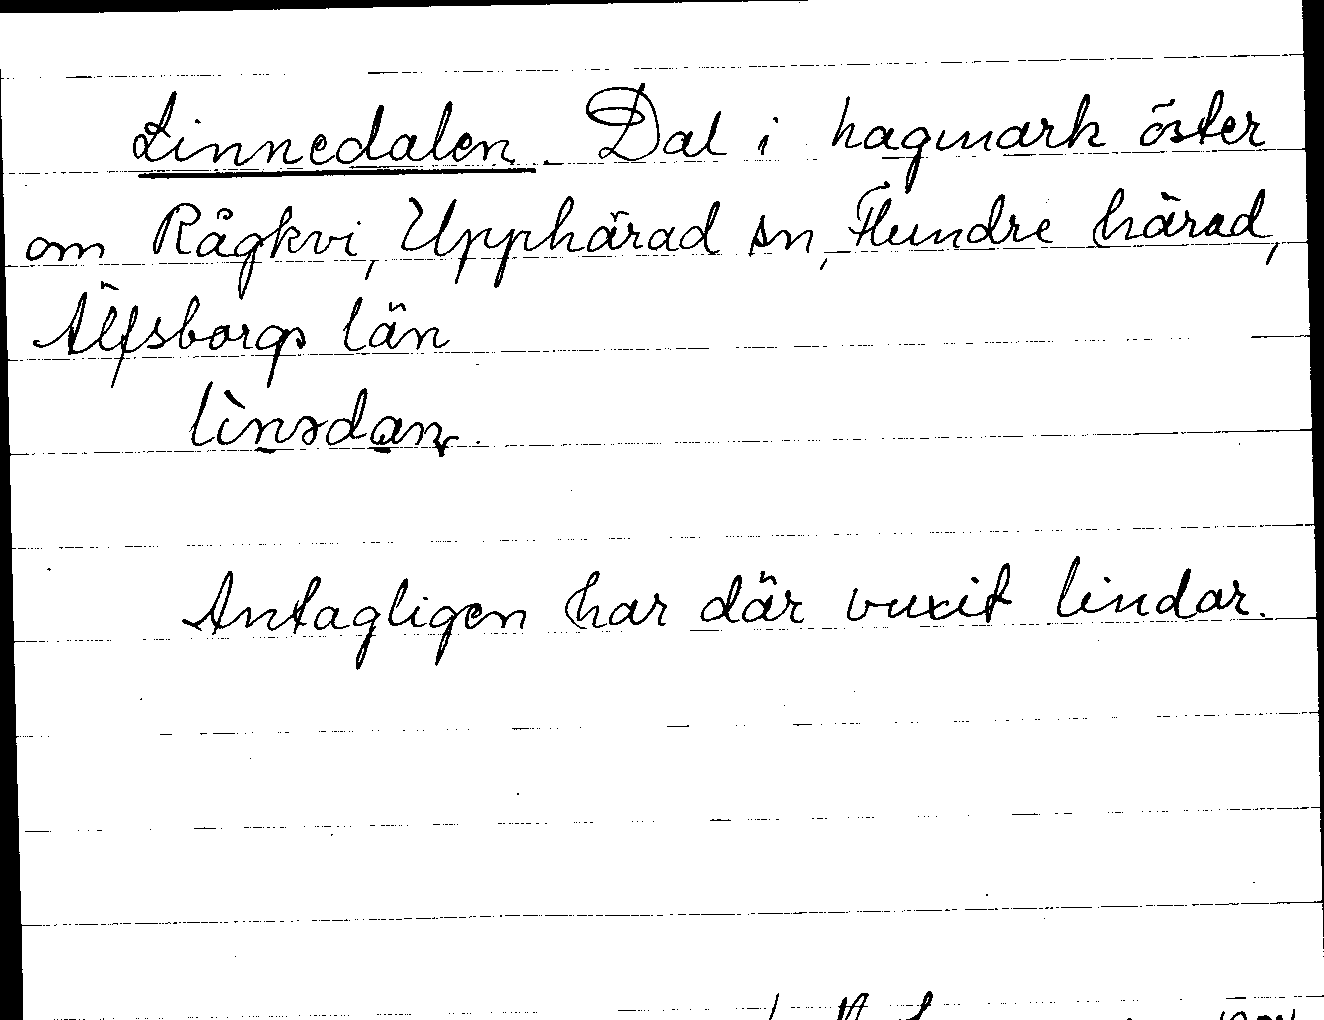 Linnedalen. Dal i hagmark öster
om Rågkvi, Upphärad sn, Flundre härad,
Älfsborgs län
lìnədan.
Antagligen har där vuxit lindar.